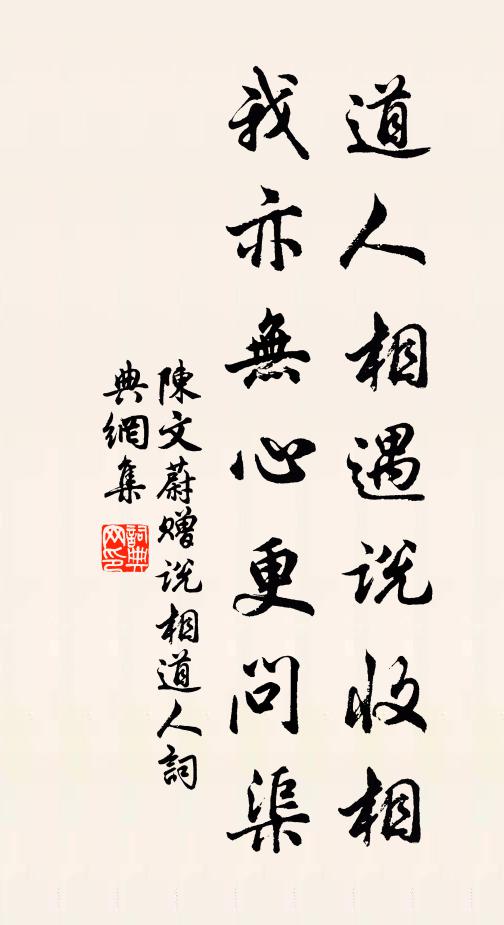 道人相遇说收相
我亦無心更問渠
陳文蔚赠说相道人詞
典網集
詞典网印